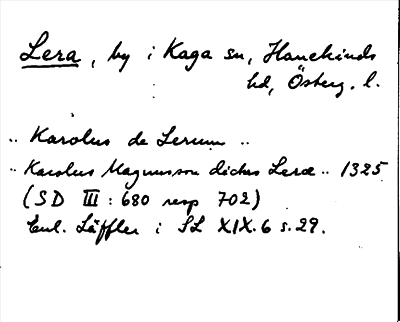 Lera, by i Kaga sn, Hanekinds
hd, Österg. l.
.. Karolus de Lerum ..
.. Karolus Magnusson dictus Leræ .. 1325
(SD III : 680 resp 702)
Enl. Läffler i SL XIX.6 s.29.